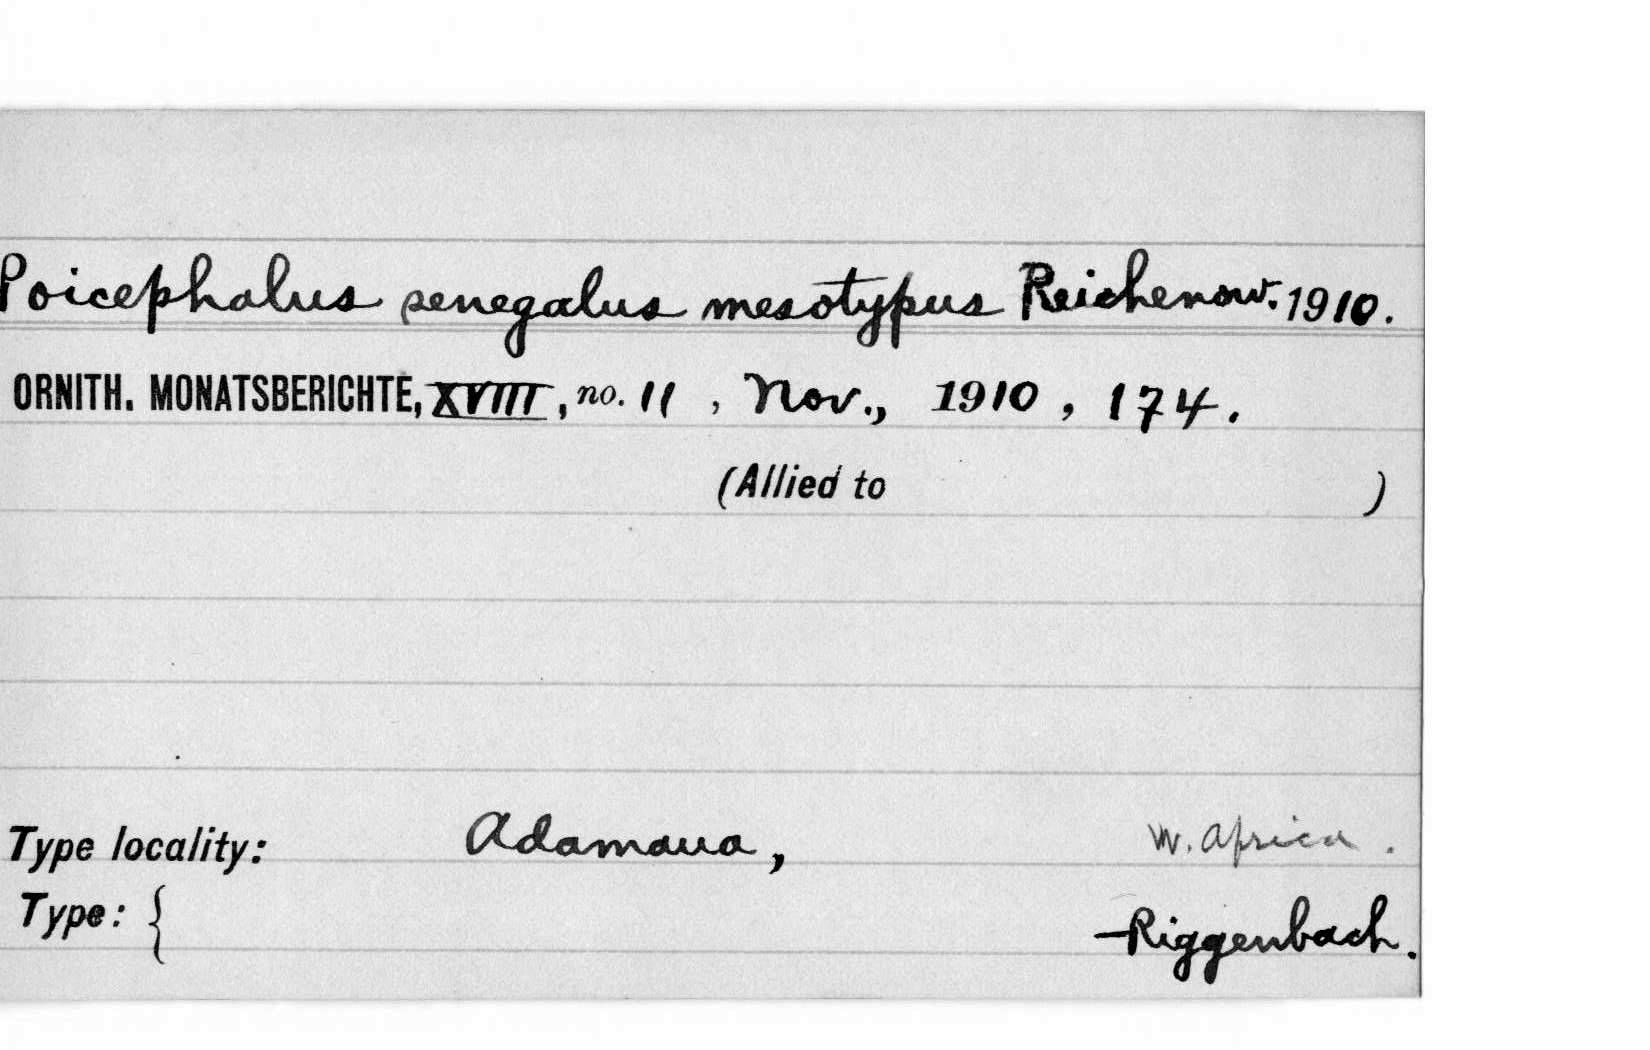 Poicephalus senegalus mesotypus Reichenow. 1910.
ORNITH. MONATSBERICHTE, XVIII, no. 11, Nov., 1910, 174.
(Allied to )
Type locality: Adamaua, W. Africa.
Type: {
—Riggenbach.